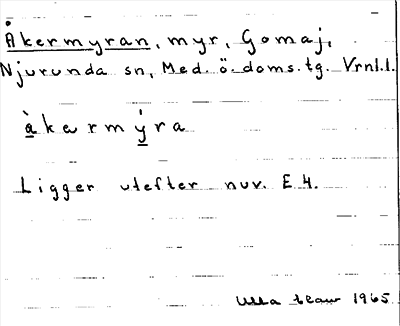 Åkermyran, myr, Gomaj,
Njurunda sn, Med. ö. doms. tg. Vrnl.l.
àkermýra
Ligger utefter nuv. E 4.
Ulla 1965